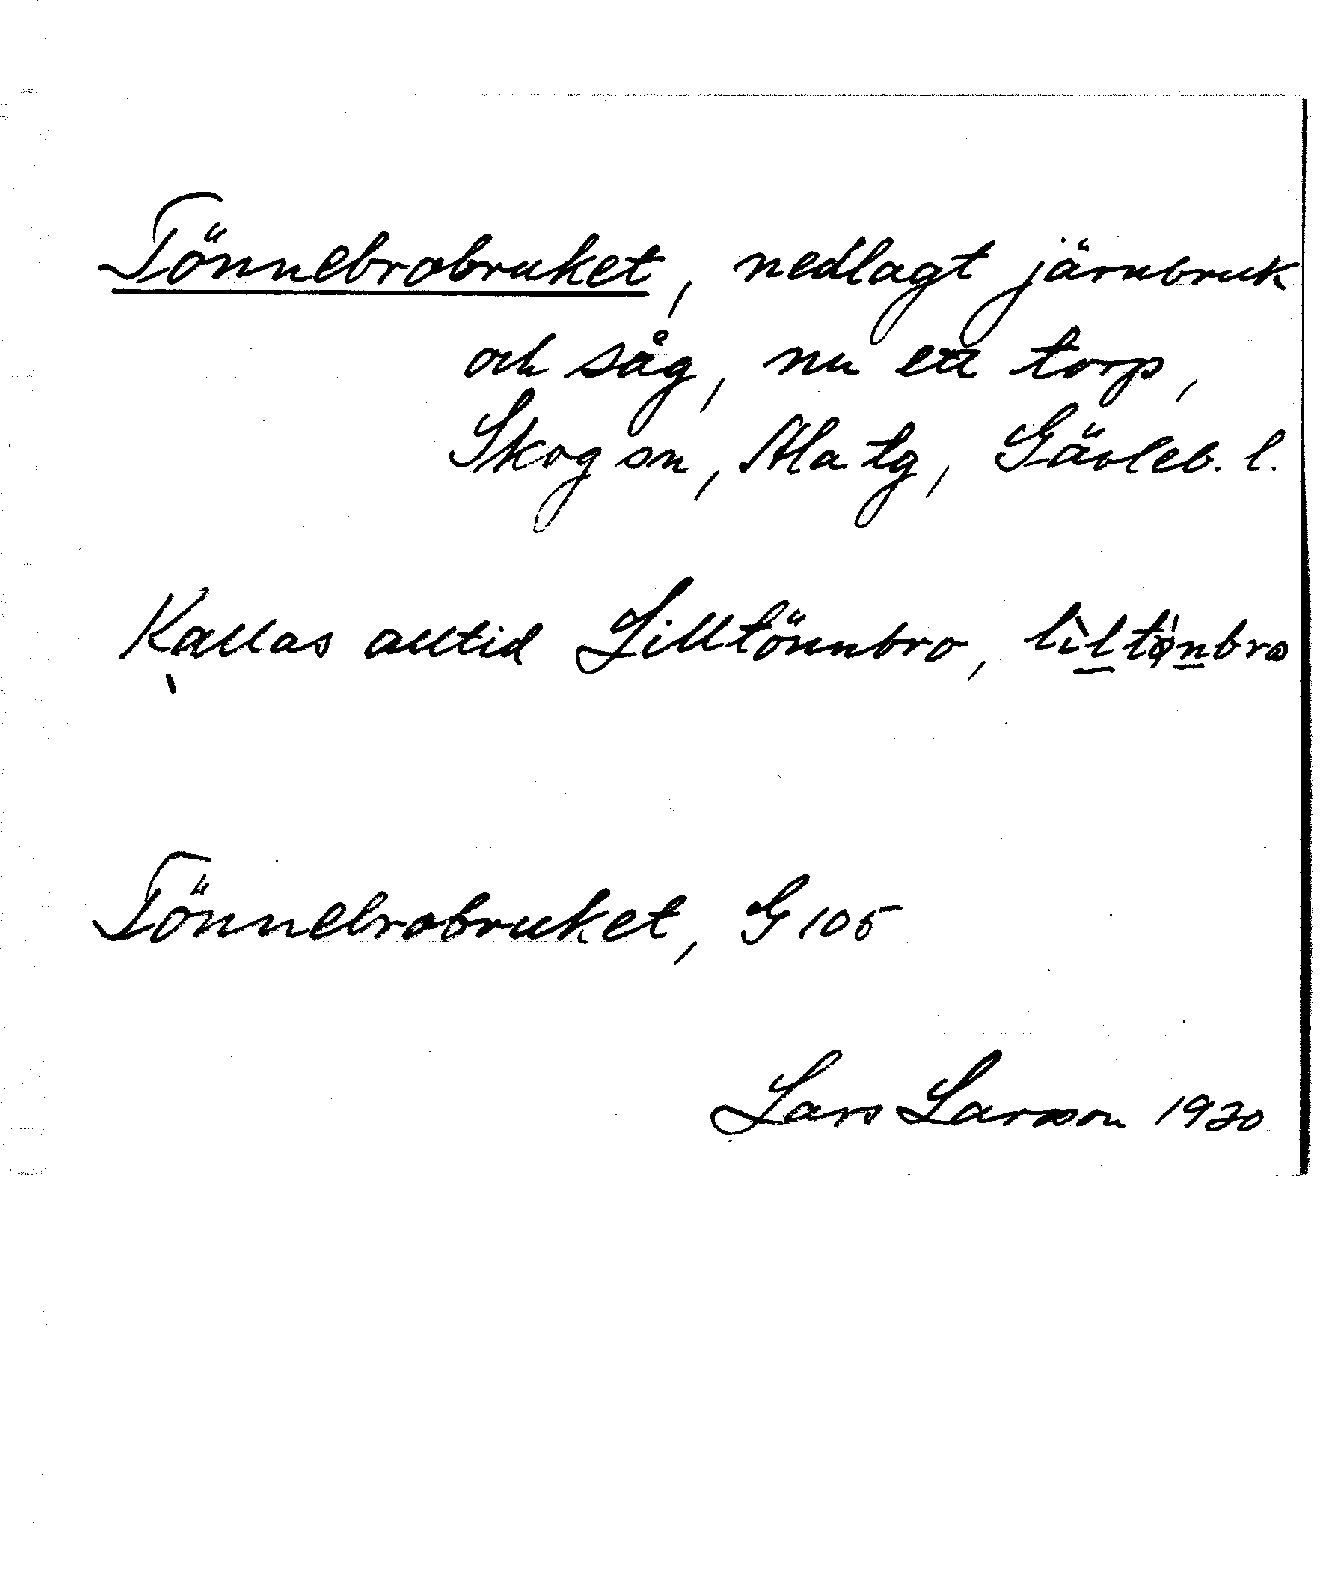 Tönnebrobruket, nedlagt järnbruk
och såg, nu ett torp,
Skog sn, Ala tg, Gävleb. l.
Kallas alltid Lilltönnbro, lìltǿnbro
Tönnebrobruket, G 105
Lars Larsson 1930